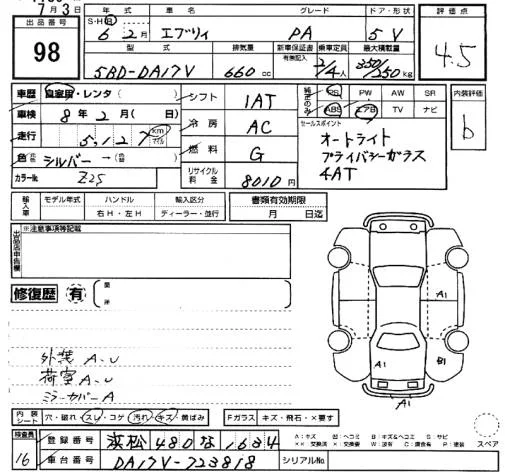 7月3日
出品番号
98
年式 車名 グレード ドア・形状
S・H・R
6 2月 エブリィ PA 5 V
型式 排気量 新車保証書 乗車定員 最大積載量
有無記入
5BD-DA17V 660cc 2/4人 350/250kg
評価点
4.5
車歴 自家用・レンタ
車検 8年2月(日)
走行 5,127 km マイル
色 シルバー→
カラーNo. Z25
シフト 1AT
冷房 AC
燃料 G
リサイクル料金 8010円
純正のみ
PS PW AW SR
ABS エアB TV ナビ
セールスポイント
オートライト
プライバシーガラス
4AT
内装評価
b
輸入車
モデル年式 ハンドル 輸入区分
右H・左H ディーラー・並行
書類有効期限
月 日迄
出品店申告欄
※注意事項等記載
修復歴 有
箇所
外装 A、U
荷室 A、U
ミラーカバーA
A1
A1
B1
A1
内装シート 穴・破れ・スレ・コゲ・汚れ・キズ・黄ばみ
Fガラス キズ・飛石・×要す
スペア
検査員
16
登録番号 浜松 480 な 1634
車台番号 DA17V-723818
シリアルNo.
A:キズ U:ヘコミ B:キズ&ヘコミ S:サビ
××:交換済 ×:交換要 W:波有 C:腐食有 P:塗装